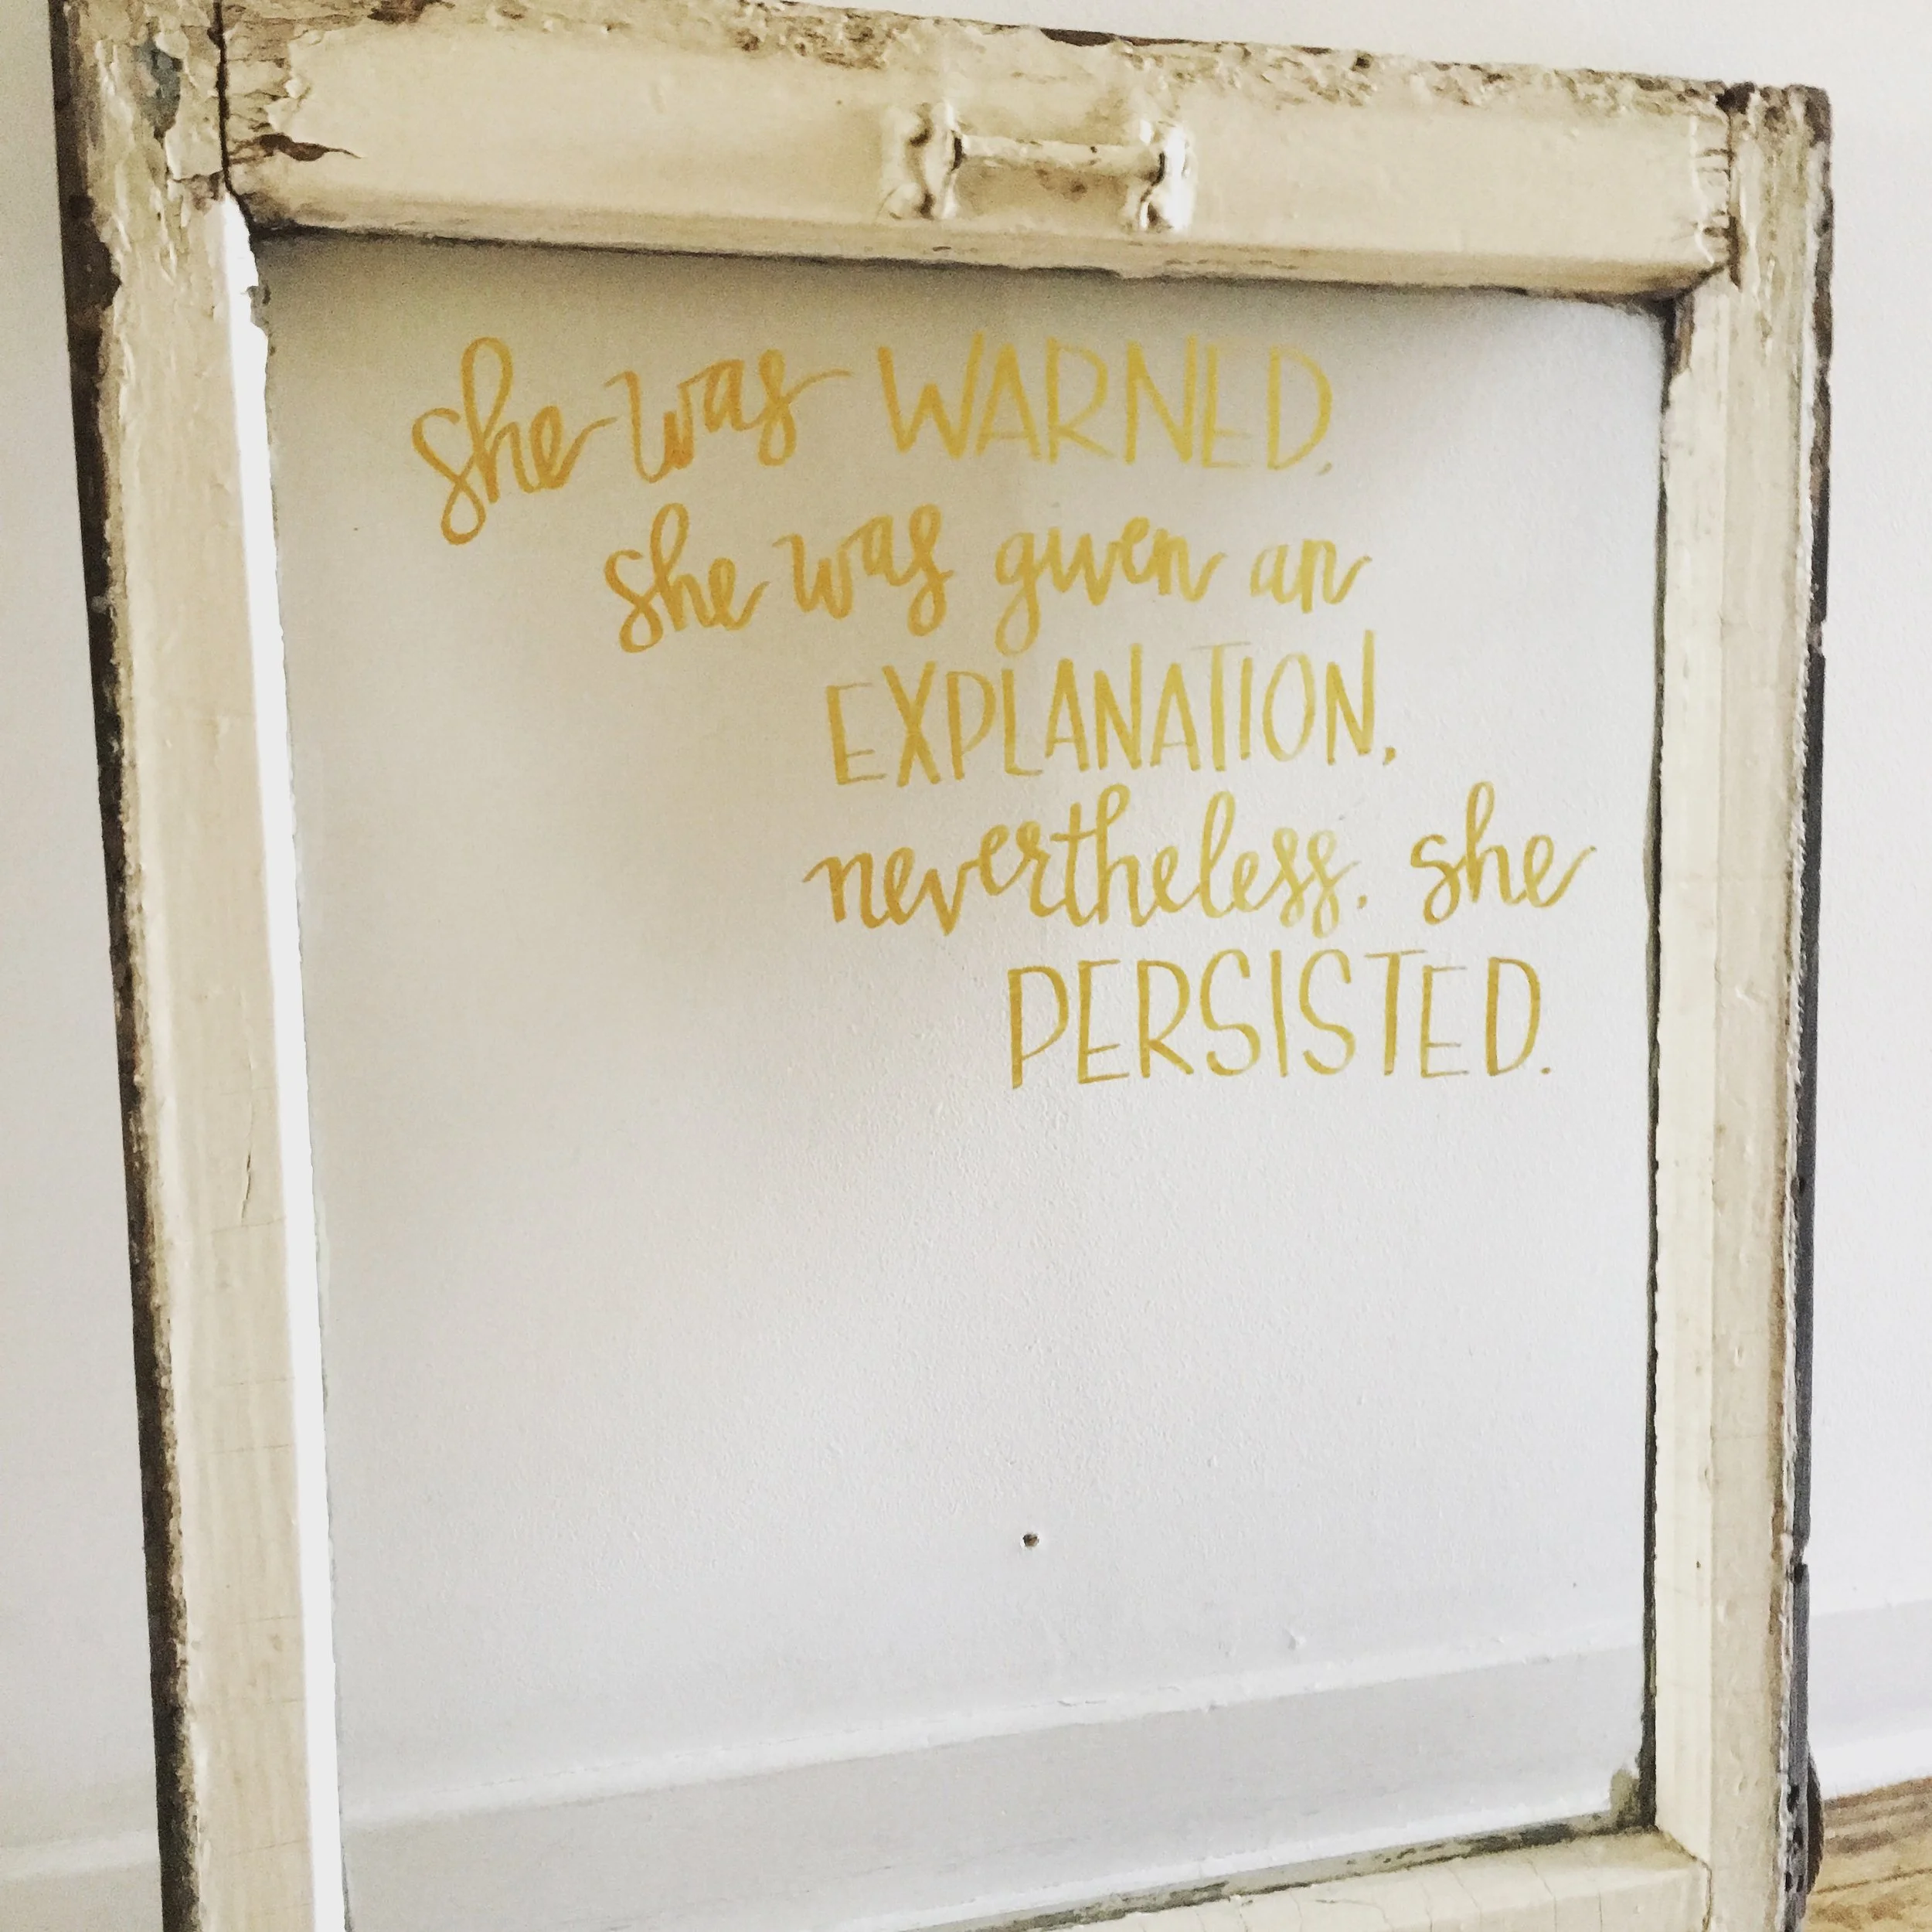 she was WARNED.
she was given an
EXPLANATION.
nevertheless, she
PERSISTED.